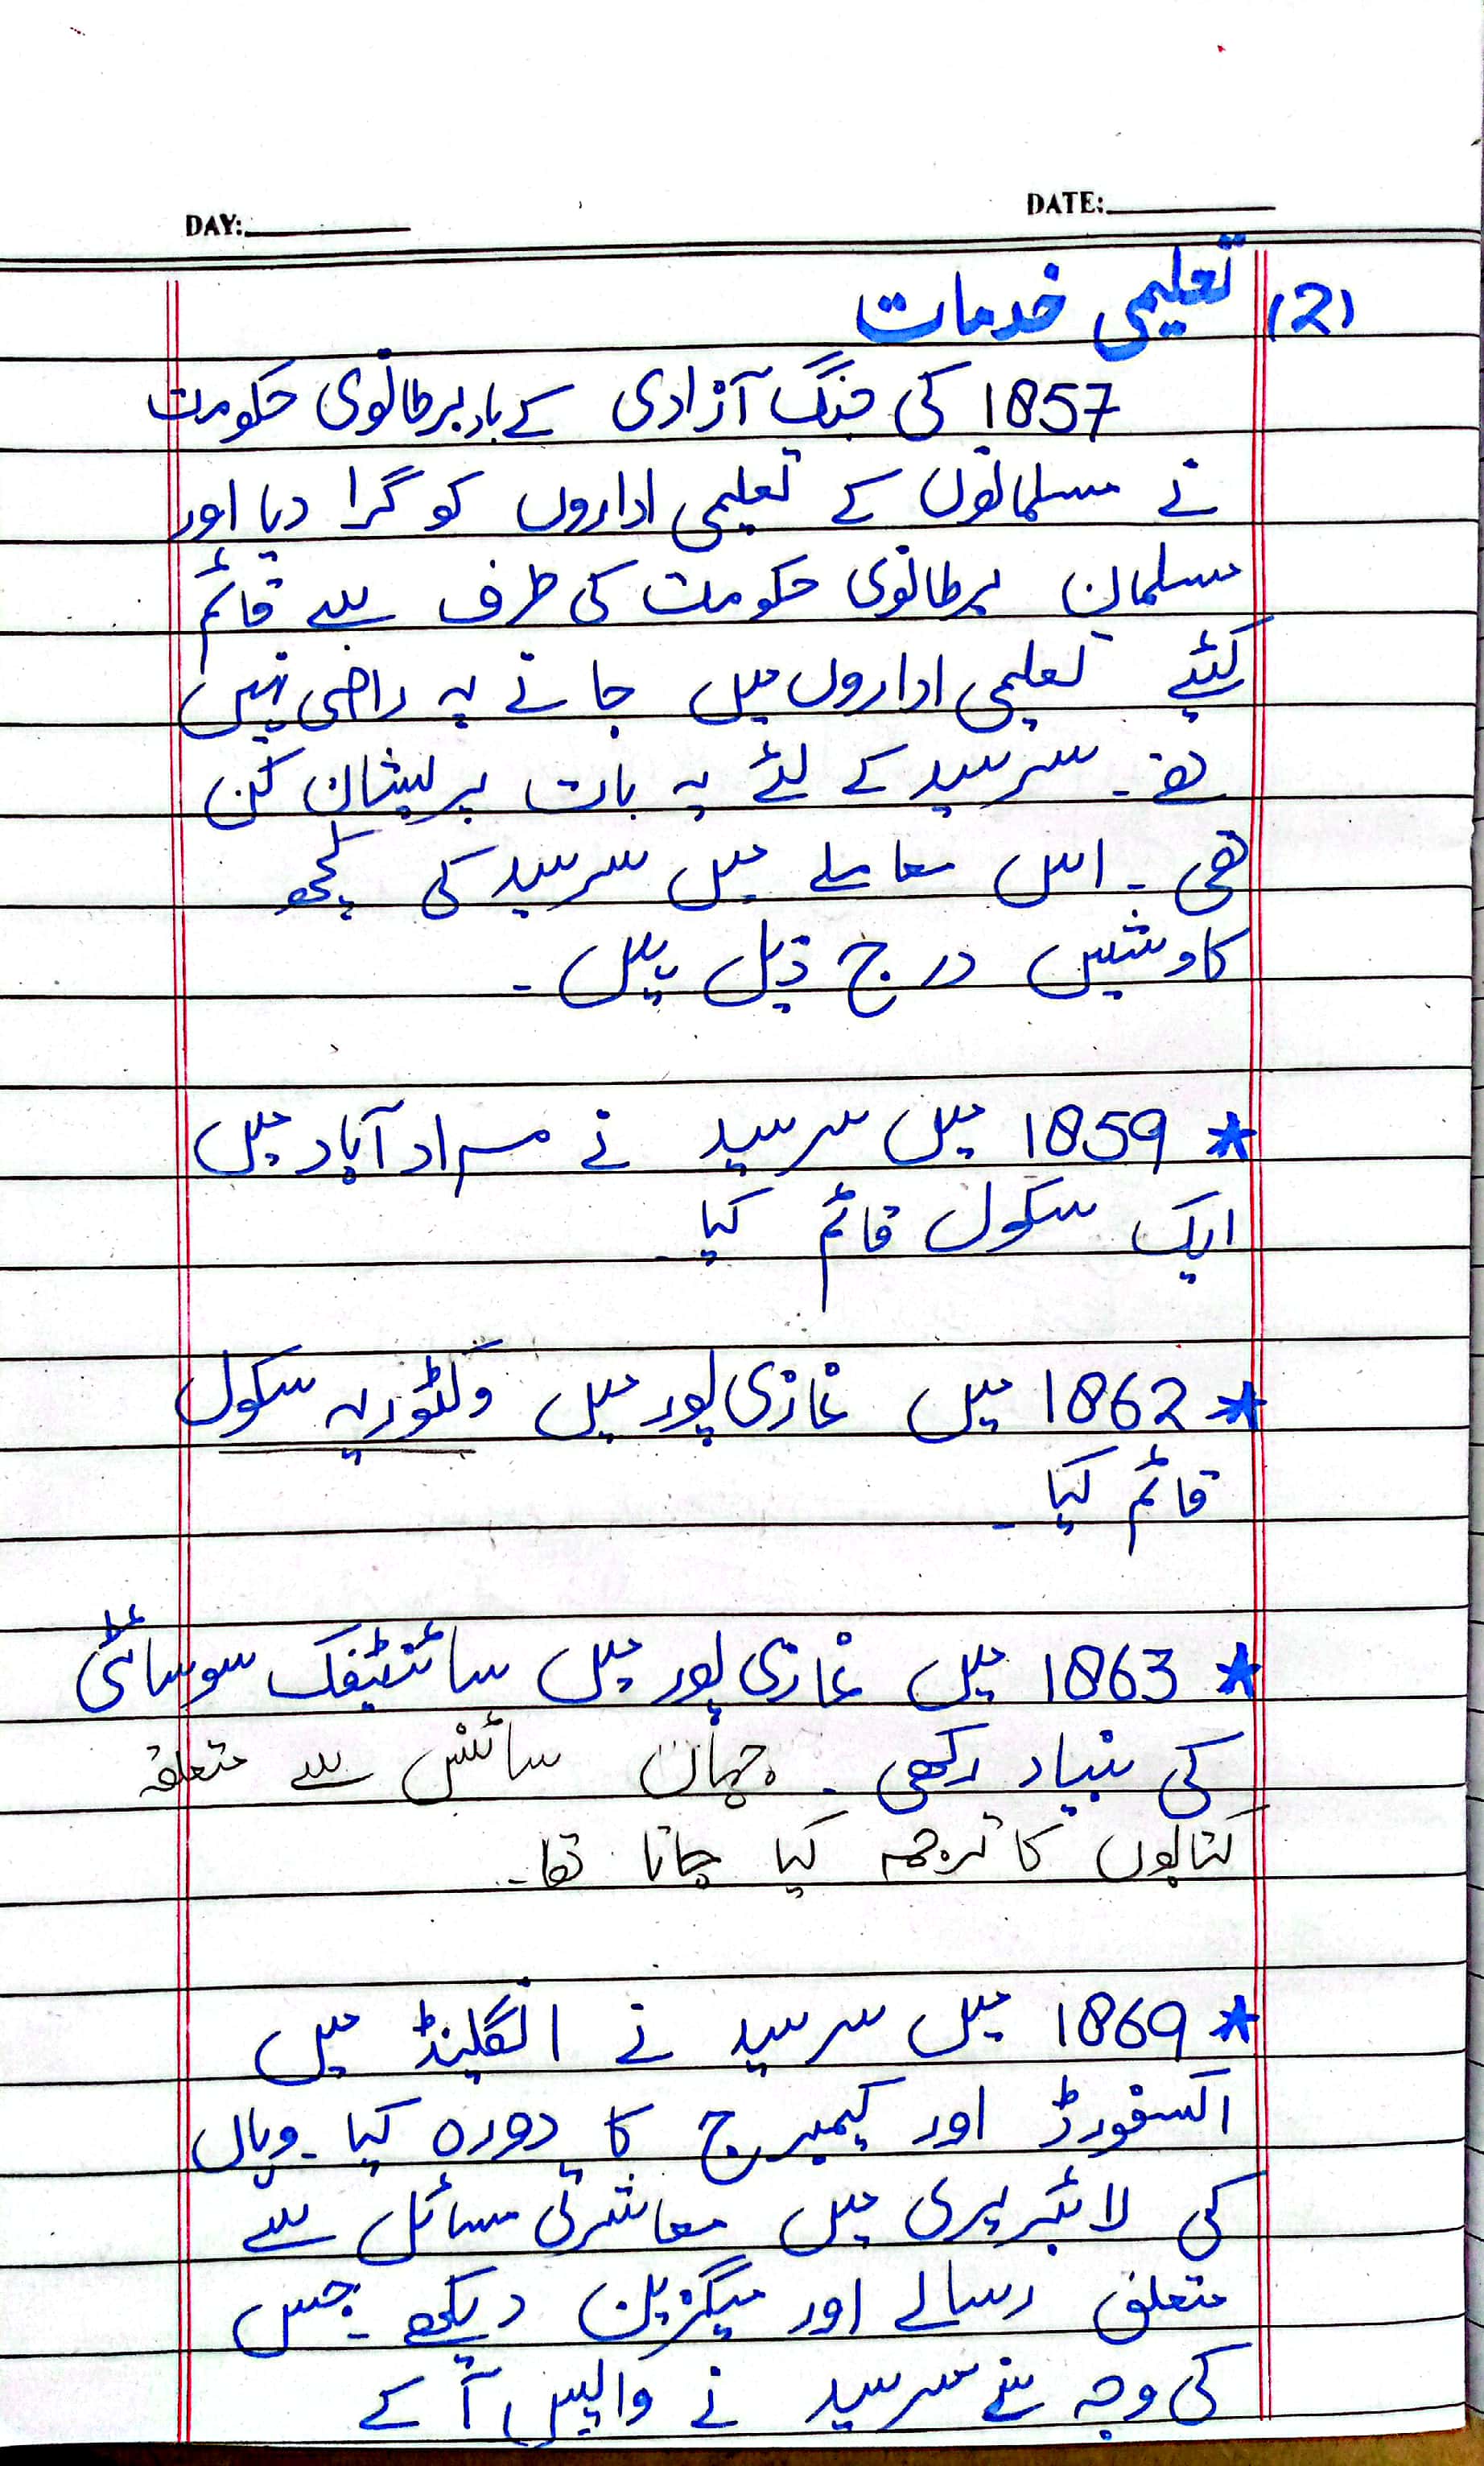 DAY:________ DATE:________
(2) تعلیمی خدمات
1857 کی جنگ آزادی کے بعد برطانوی حکومت
نے مسلمانوں کے تعلیمی اداروں کو گرا دیا اور
مسلمان برطانوی حکومت کی طرف سے قائم
کئیے تعلیمی اداروں میں جانے پہ راضی نہیں
تھے۔ سرسید کے لئے یہ بات پریشان کن
تھی۔ اس معاملے میں سرسید کی کچھ
کاوشیں درج ذیل ہیں۔
* 1859 میں سرسید نے مراد آباد میں
ایک سکول قائم کیا۔
* 1862 میں غازی پور میں وکٹوریہ سکول
قائم کیا۔
* 1863 میں غازی پور میں سائنٹیفک سوسائٹی
کی بنیاد رکھی۔ جہاں سائنس سے متعلقہ
کتابوں کا ترجمہ کیا جاتا تھا۔
* 1869 میں سرسید نے انگلینڈ میں
اکسفورڈ اور کیمبرج کا دورہ کیا۔ وہاں
کی لائبریری میں معاشرتی مسائل سے
متعلق رسالے اور میگزین دیکھے۔ جس
کی وجہ سے سرسید نے واپس آ کے